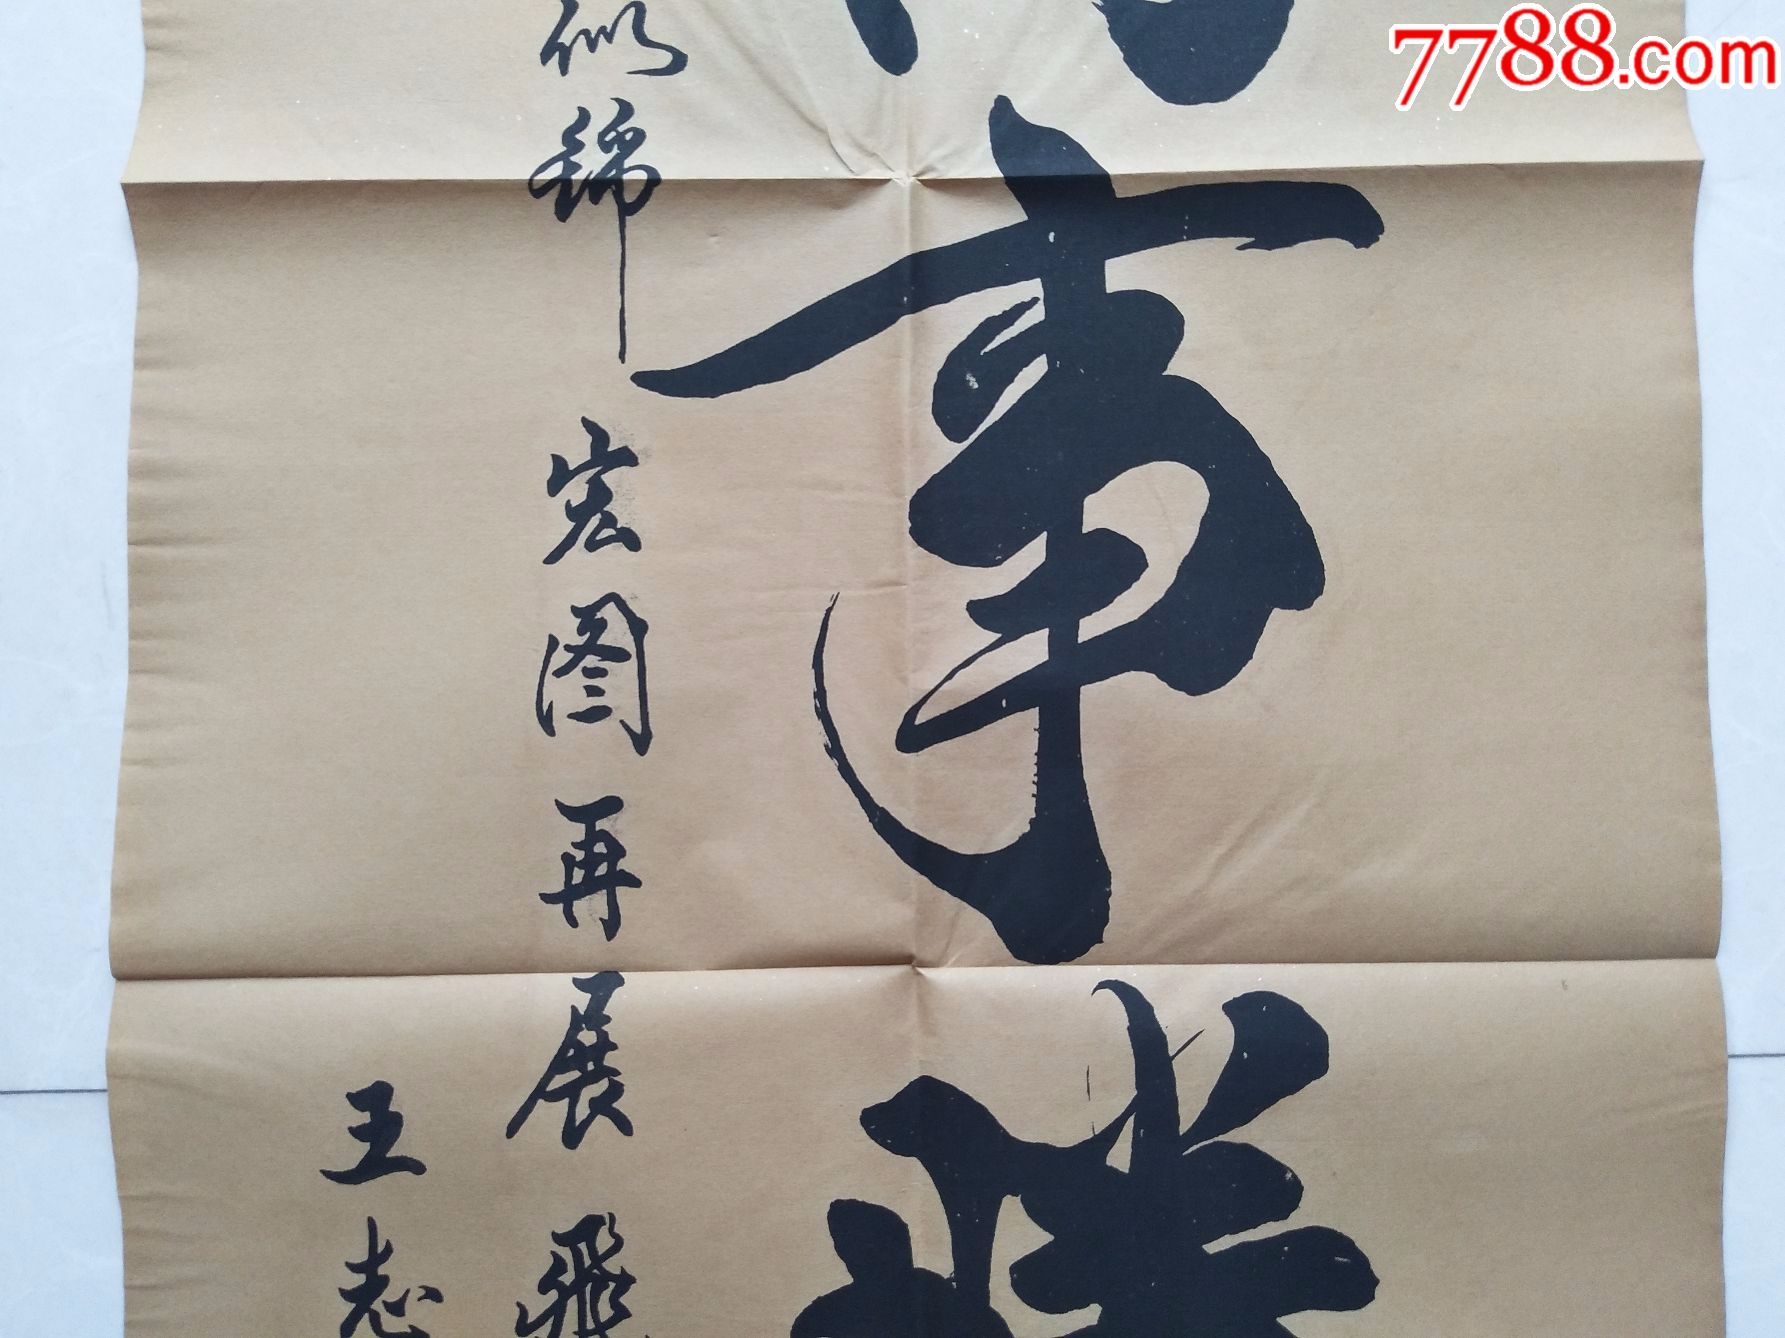 7788.com
事
勝
似錦 宏图再展飛
王志